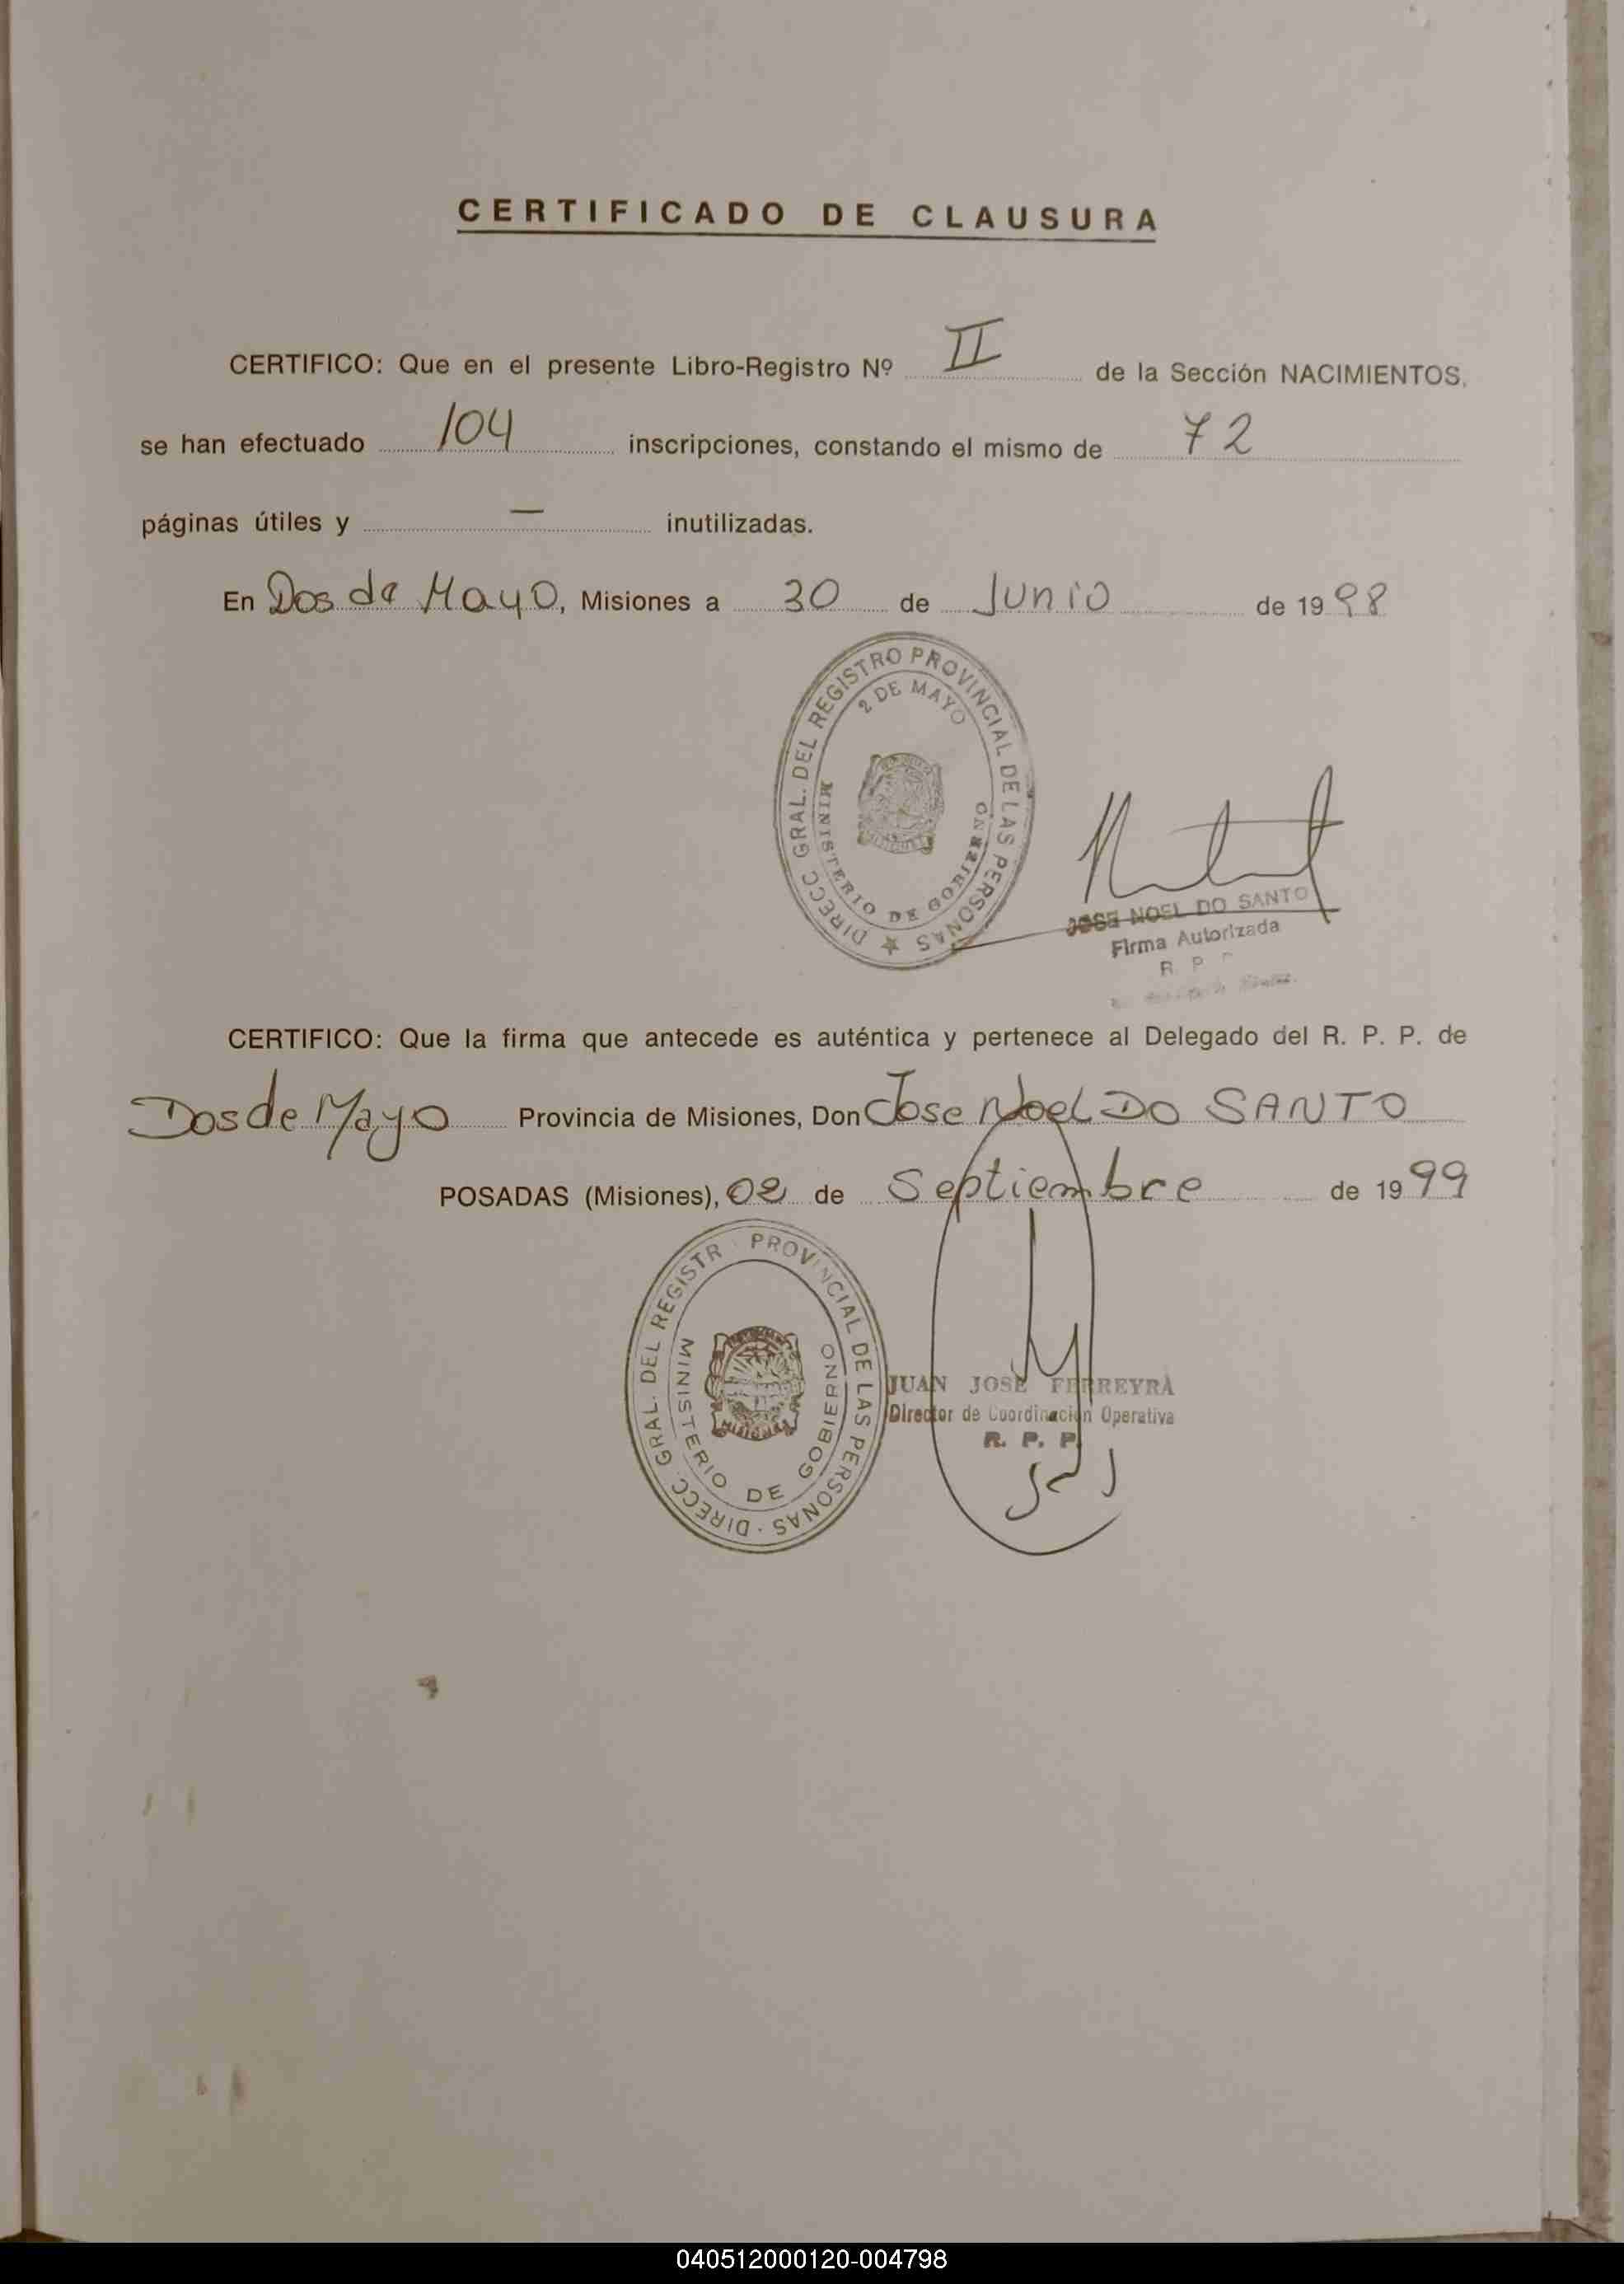 CERTIFICADO DE CLAUSURA
CERTIFICO: Que en el presente Libro-Registro Nº II de la Sección NACIMIENTOS,
se han efectuado 104 inscripciones, constando el mismo de 72
páginas útiles y — inutilizadas.
En Dos de Mayo, Misiones a 30 de Junio de 1998
DIRECC GRAL. DEL REGISTRO PROVINCIAL DE LAS PERSONAS
2 DE MAYO
MINISTERIO DE GOBIERNO
MISIONES
JOSE NOEL DO SANTO
Firma Autorizada
R. P.
CERTIFICO: Que la firma que antecede es auténtica y pertenece al Delegado del R. P. P. de
Dos de Mayo Provincia de Misiones, Don Jose Noel DO SANTO
POSADAS (Misiones), 02 de Septiembre de 1999
DIRECC. GRAL. DEL REGISTR PROVINCIAL DE LAS PERSONAS
MINISTERIO DE GOBIERNO
MISIONES
JUAN JOSE FERREYRA
Director de Coordinación Operativa
R. P. P.
040512000120-004798